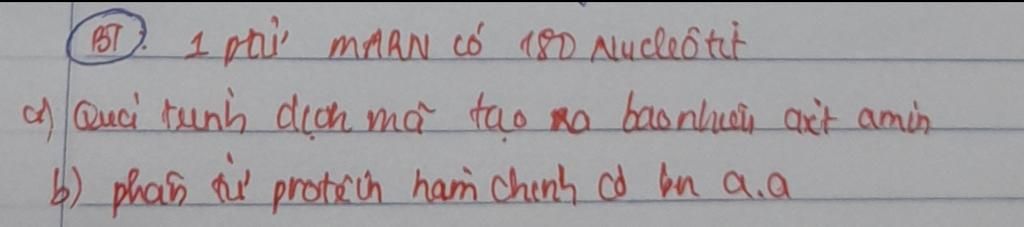 BT: 1 ptử mARN có 180 Nuclêôtit
a) Quá trình dịch mã tạo ra bao nhiêu axit amin
b) phân tử protêin hoàn chỉnh có bn a.a